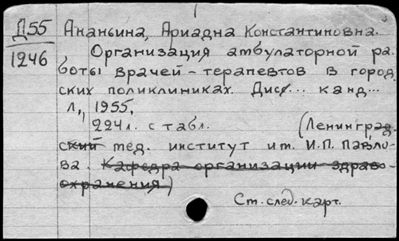 Д55 Ананьина, Ариадна Константиновна.
1246
Организация амбулаторной ра-
боты врачей - терапевтов в город
ских поликлиниках. Дисс... канд...
Л., 1955,
224л. с табл. (Ленинград-
ский мед. институт им. И.П. Павло-
ва. Кафедра организации здраво-
охранения)
Ст. след. карт.